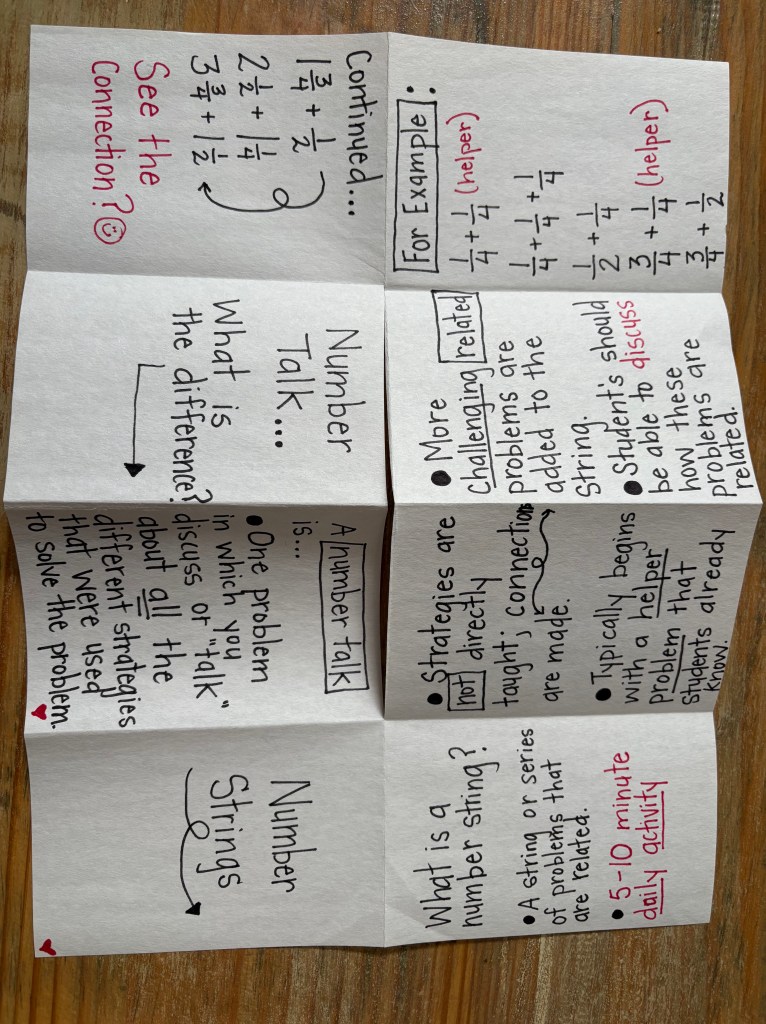 Number
Strings
What is a
number string?
• A string or series
of problems that
are related.
• 5-10 minute
daily activity
• Strategies are
not directly
taught; connections
are made.
• Typically begins
with a helper
problem that
students already
know.
• More
challenging related
problems are
added to the
string.
• Student's should
be able to discuss
how these
problems are
related.
For Example:
1/4 + 1/4 (helper)
1/4 + 1/4 + 1/4
1/2 + 1/4
3/4 + 1/4 (helper)
3/4 + 1/2
Continued...
1 3/4 + 1/2
2 1/2 + 1 1/4
3 3/4 + 1 1/2
See the
Connection? ☺
Number
Talk...
What is
the difference?
A number talk
is...
• One problem
in which you
discuss or "talk"
about all the
different strategies
that were used
to solve the problem.